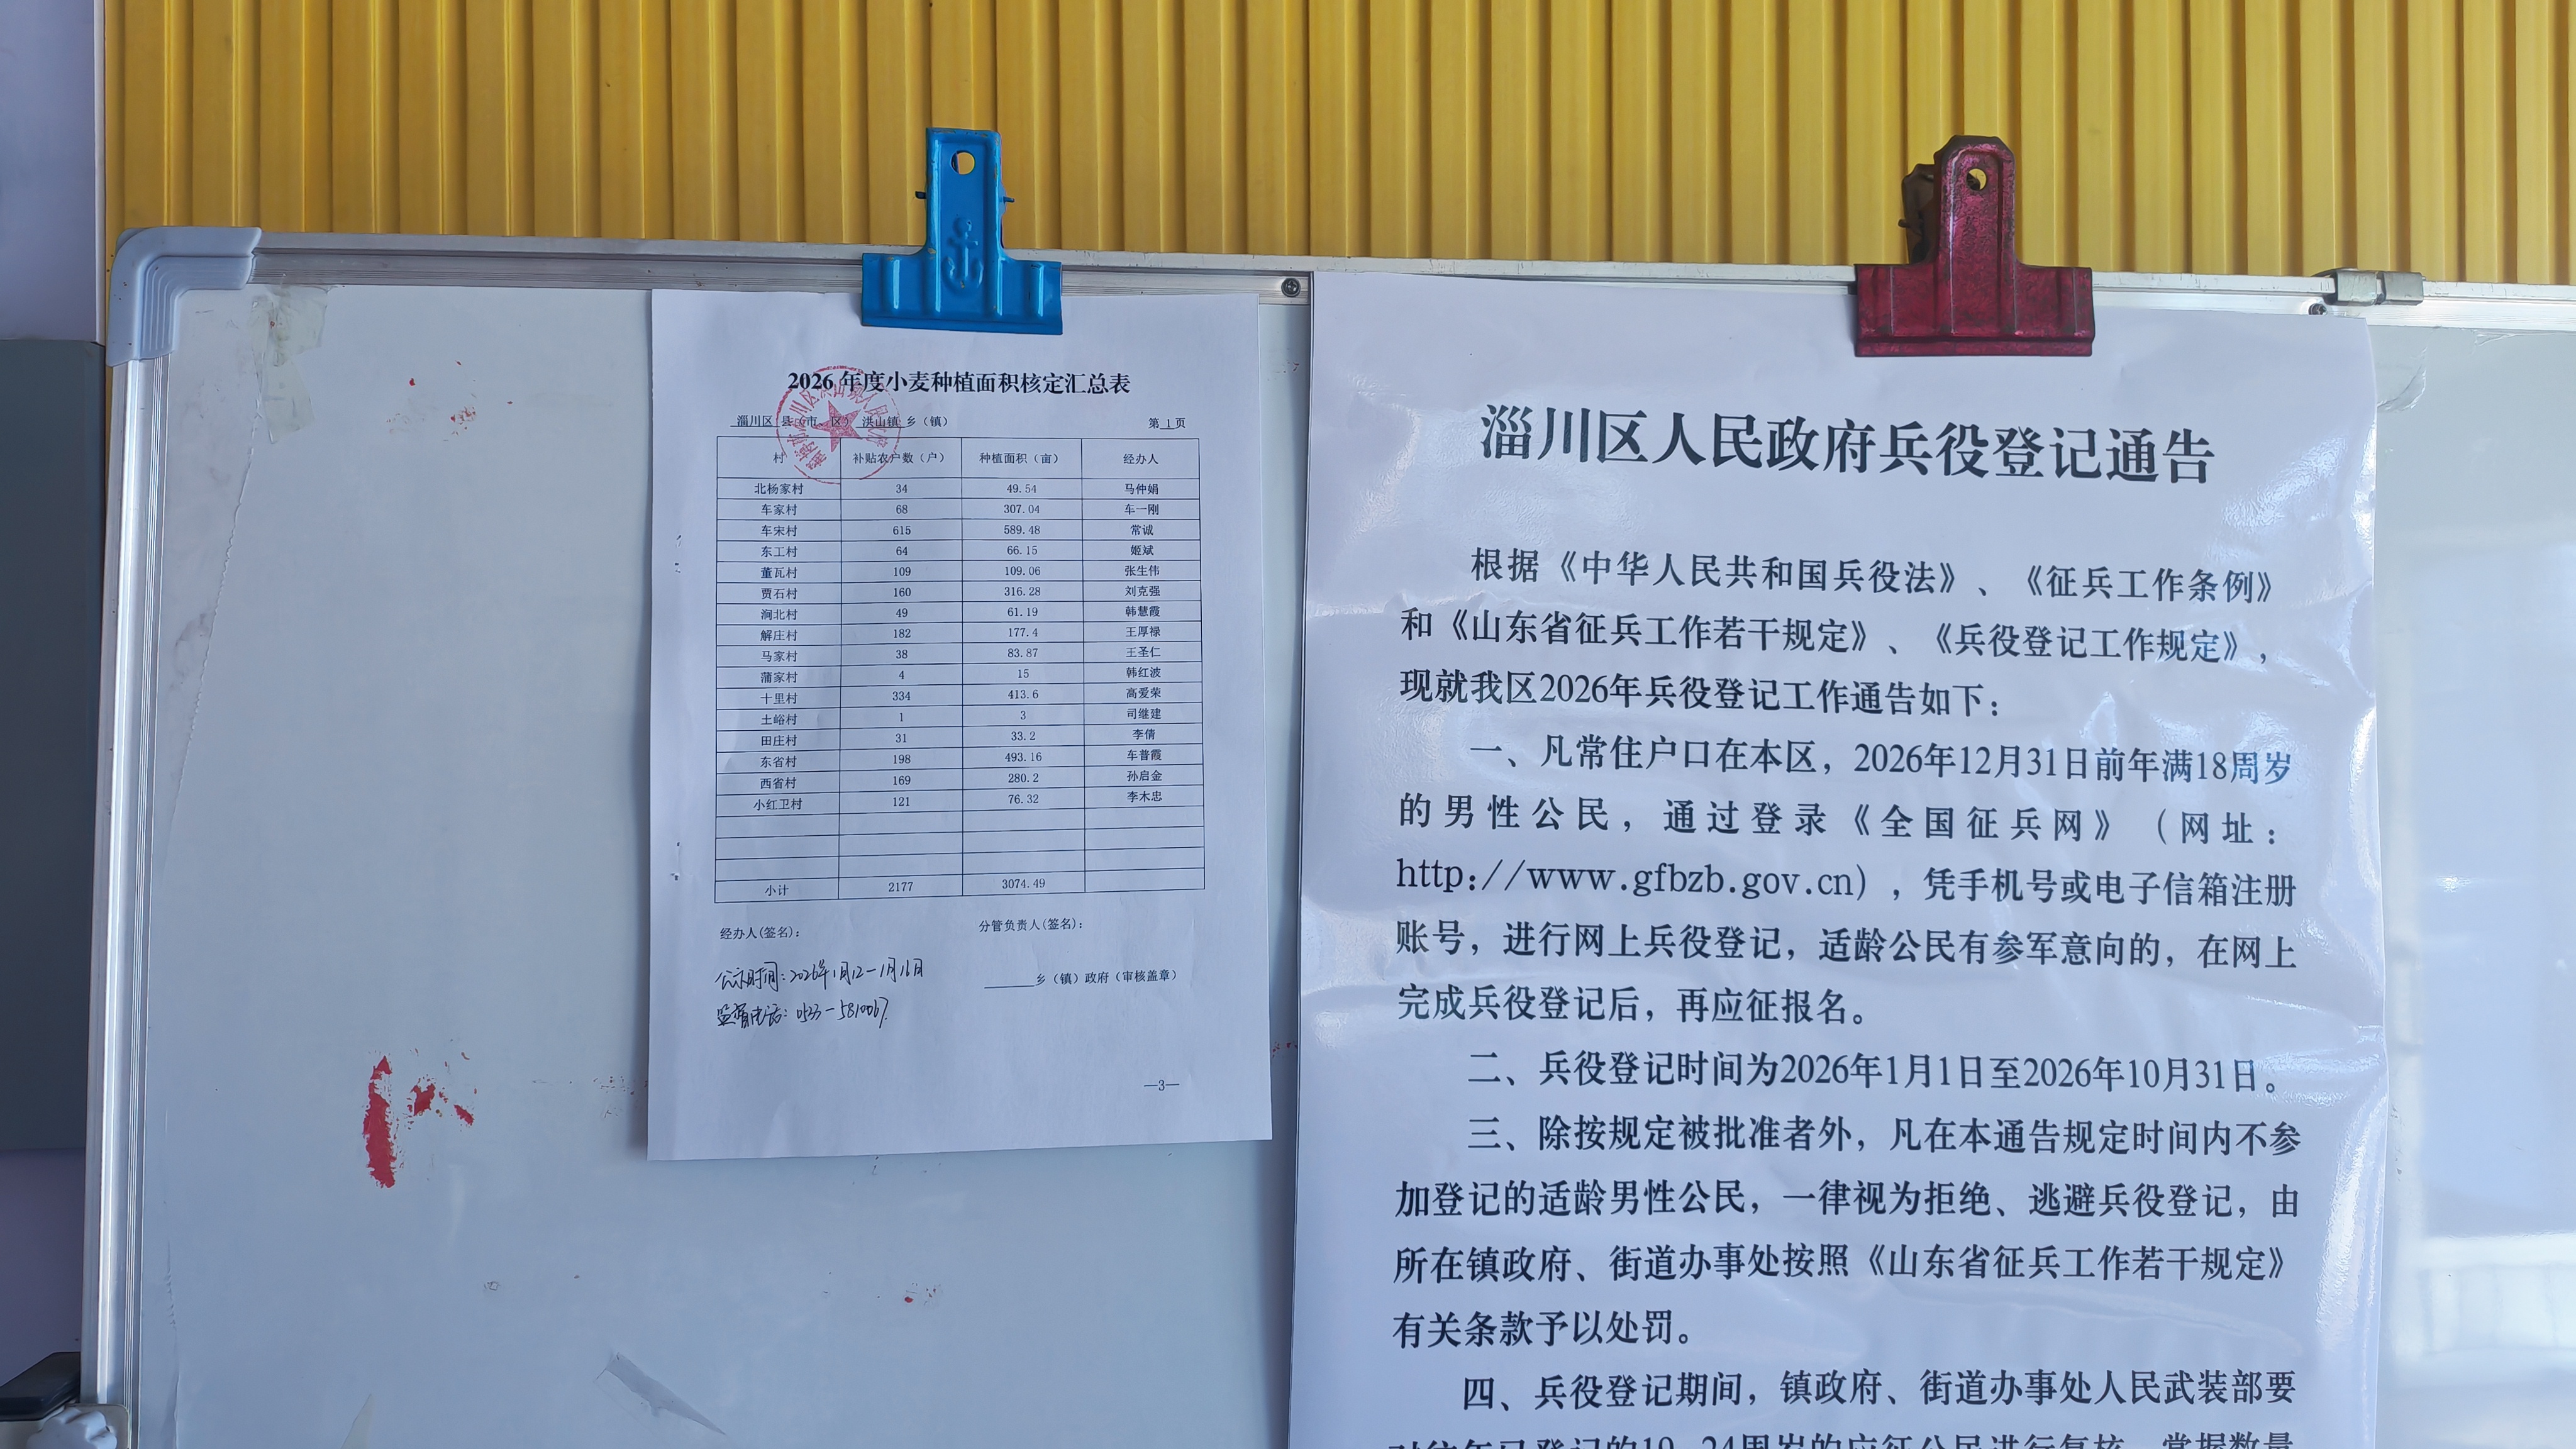 2026 年度小麦种植面积核定汇总表
淄川区 县（市、区） 洪山镇 乡（镇） 第 1 页
村 补贴农户数（户） 种植面积（亩） 经办人
北杨家村 34 49.54 马仲娟
车家村 68 307.04 车一刚
车宋村 615 589.48 常诚
东工村 64 66.15 姬斌
董瓦村 109 109.06 张生伟
贾石村 160 316.28 刘克强
涧北村 49 61.19 韩慧霞
解庄村 182 177.4 王厚禄
马家村 38 83.87 王圣仁
蒲家村 4 15 韩红波
十里村 334 413.6 高爱荣
土峪村 1 3 司继建
田庄村 31 33.2 李倩
东省村 198 493.16 车普霞
西省村 169 280.2 孙启金
小红卫村 121 76.32 李木忠
小计 2177 3074.49
经办人(签名)： 分管负责人(签名)：
公示时间：2026年1月12－1月16日
乡（镇）政府（审核盖章）
监督电话：0533－5810067
—3—
淄川区人民政府兵役登记通告
根据《中华人民共和国兵役法》、《征兵工作条例》
和《山东省征兵工作若干规定》、《兵役登记工作规定》，
现就我区2026年兵役登记工作通告如下：
一、凡常住户口在本区，2026年12月31日前年满18周岁
的男性公民，通过登录《全国征兵网》（网址：
http://www.gfbzb.gov.cn），凭手机号或电子信箱注册
账号，进行网上兵役登记，适龄公民有参军意向的，在网上
完成兵役登记后，再应征报名。
二、兵役登记时间为2026年1月1日至2026年10月31日。
三、除按规定被批准者外，凡在本通告规定时间内不参
加登记的适龄男性公民，一律视为拒绝、逃避兵役登记，由
所在镇政府、街道办事处按照《山东省征兵工作若干规定》
有关条款予以处罚。
四、兵役登记期间，镇政府、街道办事处人民武装部要